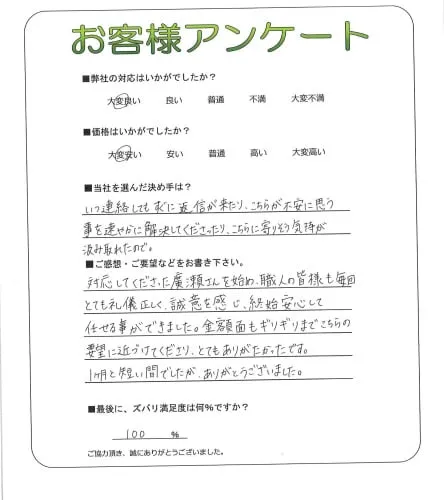 お客様アンケート
■弊社の対応はいかがでしたか？
大変良い 良い 普通 不満 大変不満
■価格はいかがでしたか？
大変安い 安い 普通 高い 大変高い
■当社を選んだ決め手は？
いつ連絡しても すぐに返信が来たり、こちらが不安に思う
事を速やかに解決してくださったり、こちらに寄りそう気持が
汲み取れたので。
■ご感想・ご要望などをお書き下さい。
対応してくださった廣瀬さんを始め、職人の皆様も毎回
とても礼儀正しく、誠意を感じ、終始安心して
任せる事ができました。金額面もギリギリまでこちらの
要望に近づけてくださり、とてもありがたかったです。
1ヶ月と短い間でしたが、ありがとうございました。
■最後に、ズバリ満足度は何%ですか？
100 %
ご協力頂き、誠にありがとうございました。